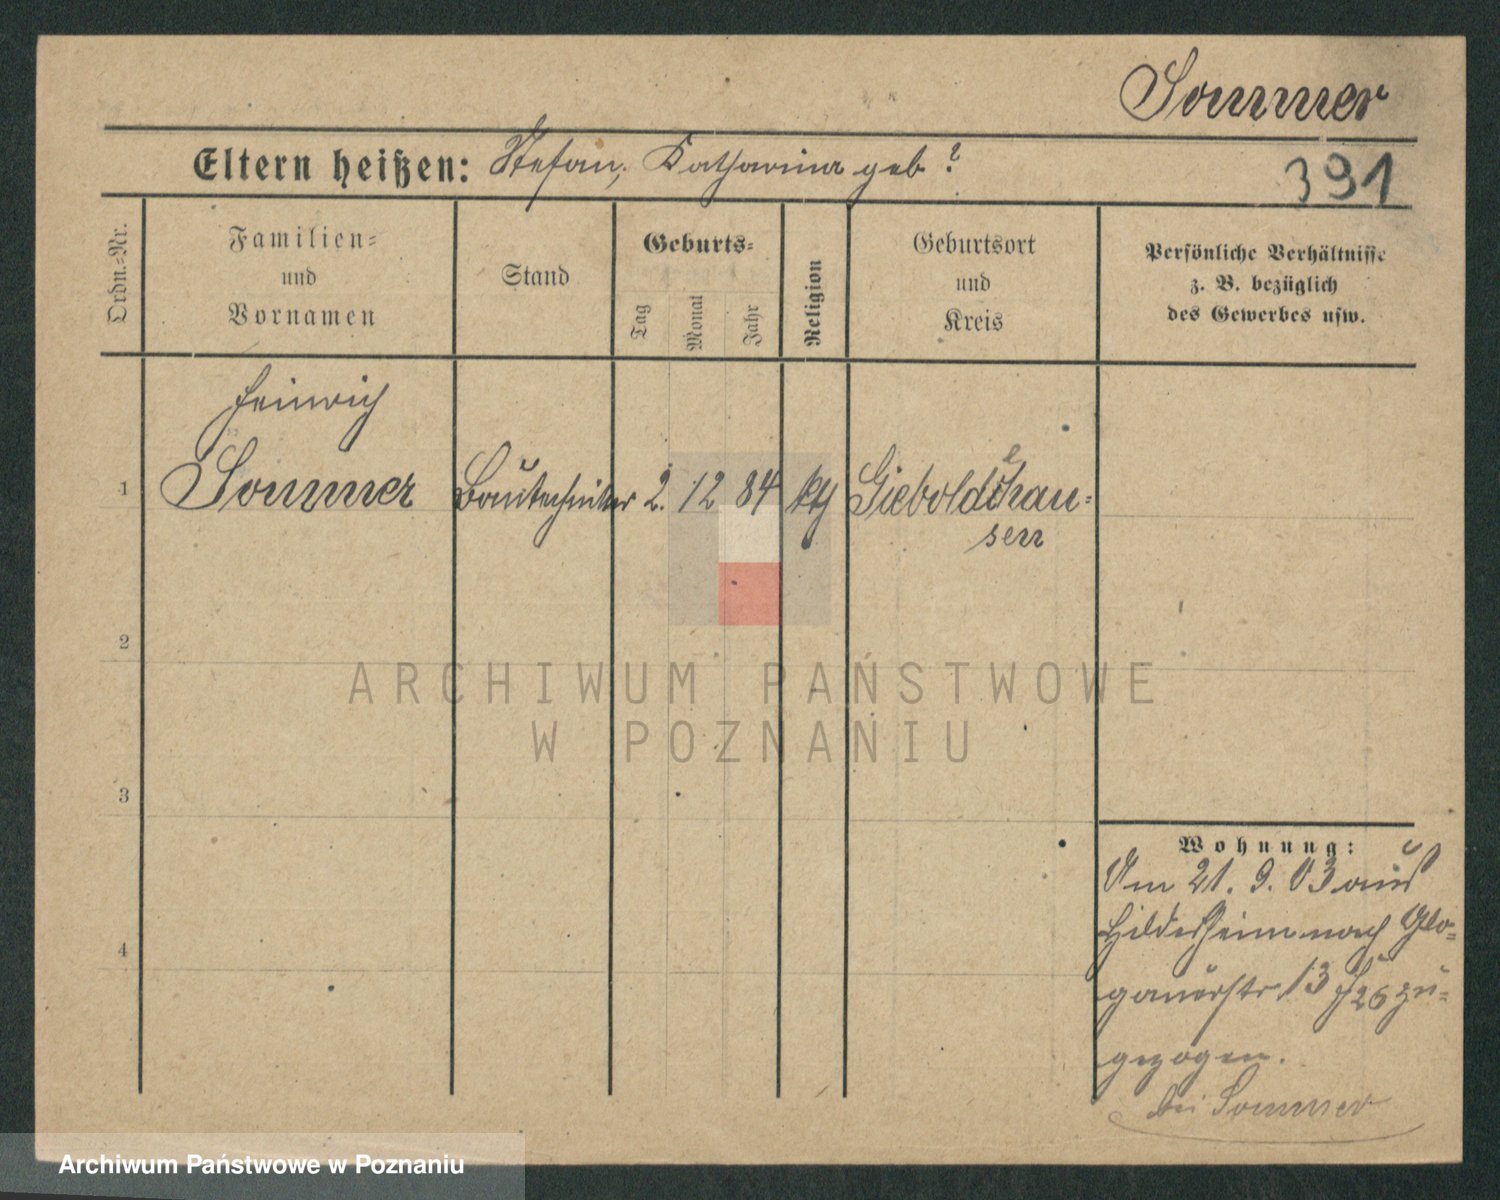 Sommer
Eltern heißen: Stefan, Katharina geb ?
391
Ordn.-Nr.
Familien-
und
Vornamen
Stand
Geburts-
Tag
Monat
Jahr
Religion
Geburtsort
und
Kreis
Persönliche Verhältnisse
z. B. bezüglich
des Gewerbes usw.
Heinrich
1 Sommer Bautechniker 2. 12 84 kth Gieboldehau-
sen
2
3
4
Wohnung:
Am 21. 9. 03 aus
Hildesheim nach Glo-
gauerstr 13 zu-
gezogen.
bei Sommer
ARCHIWUM PAŃSTWOWE
W POZNANIU
Archiwum Państwowe w Poznaniu